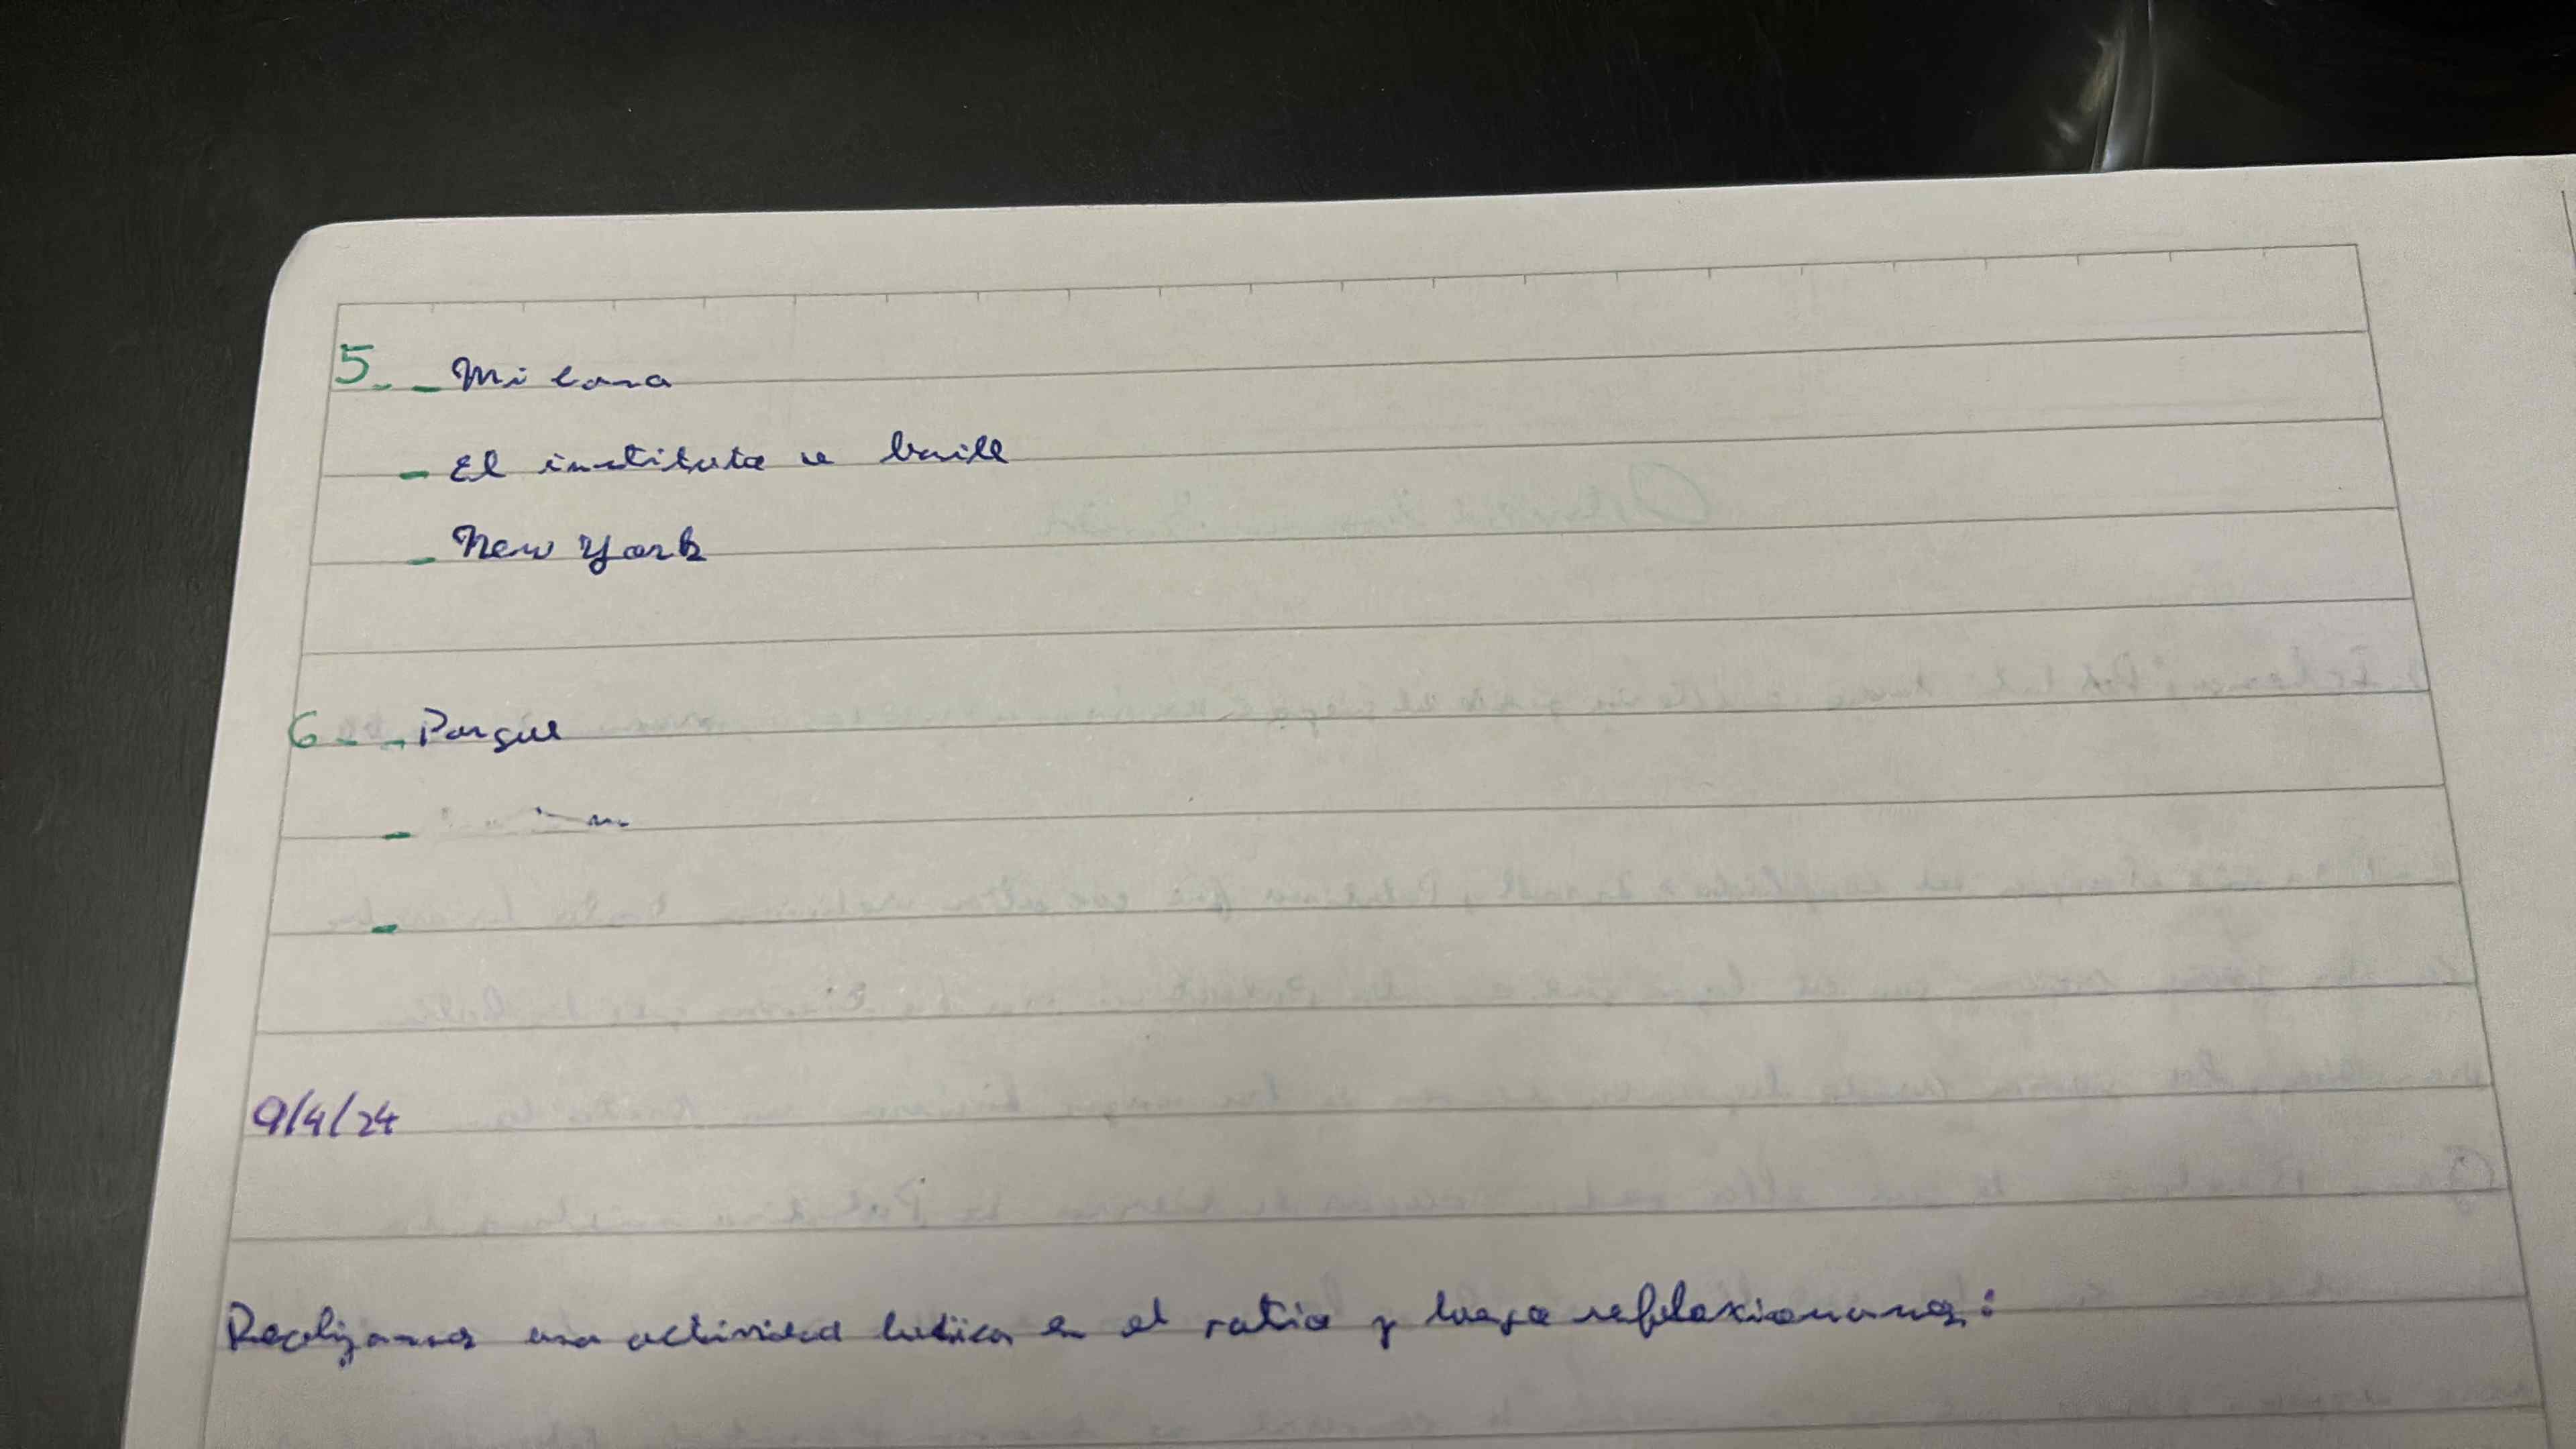 5. - Mi casa
- El instituto u baile
- New York
6 - - Parque
-
-
9/4/24
Realizamos una actividad lúdica en el patio y luego reflexionamos: